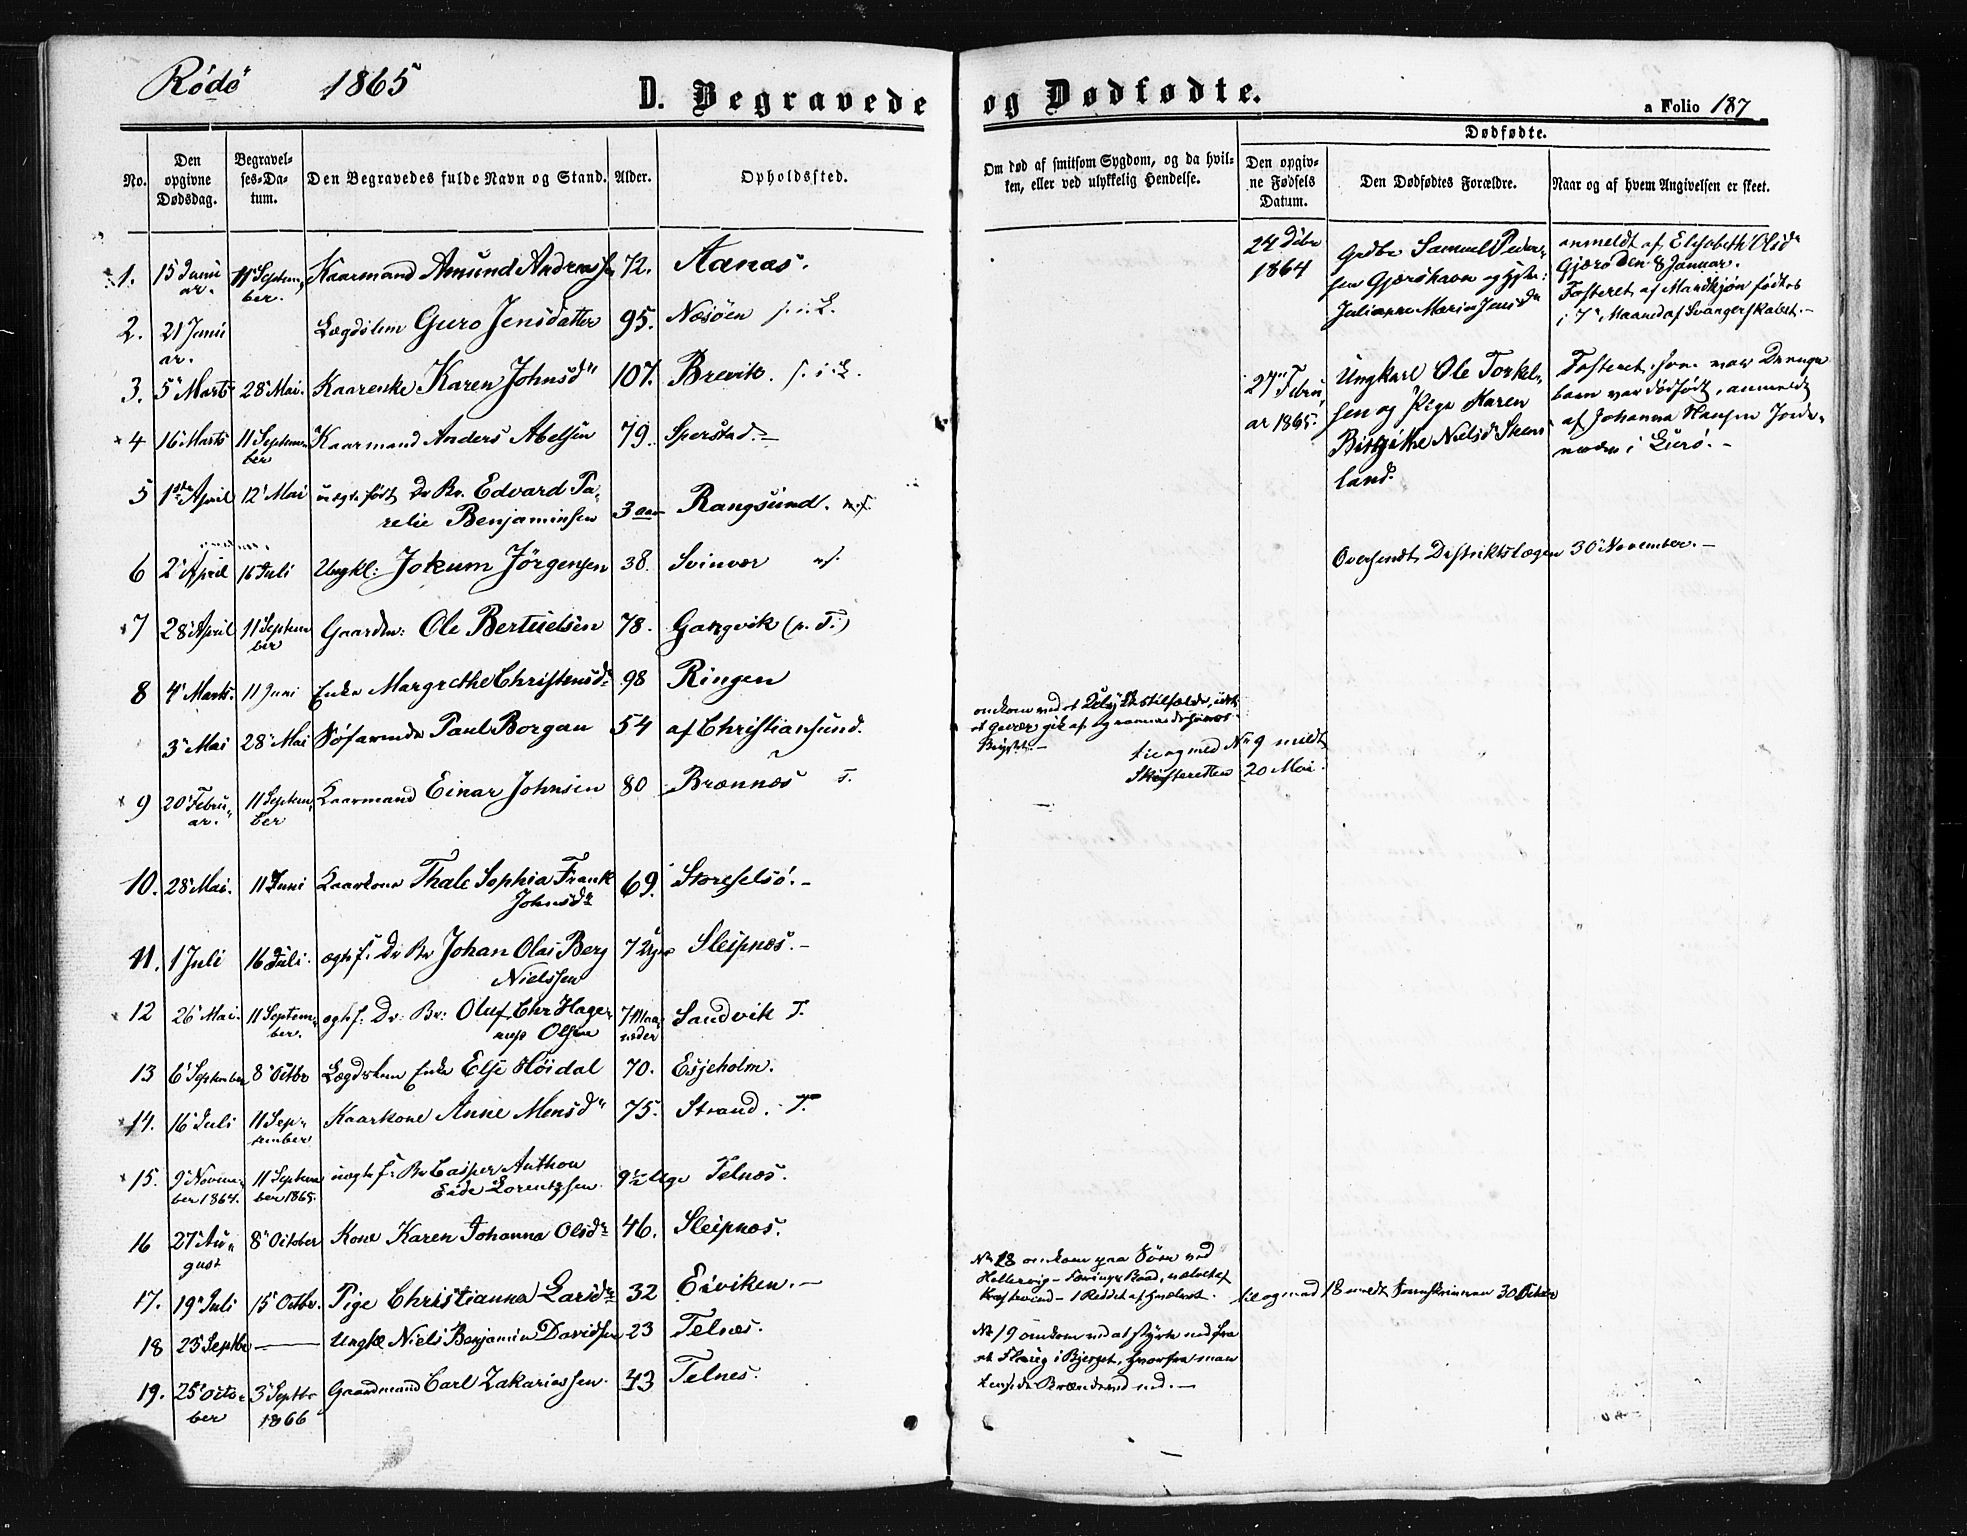 Rödö 1865 D. Begravede og Dødfødte. a Folio 187
No. Den opgivne Dødsdag. Begravelses-Datum. Den Begravedes fulde Navn og Stand. Alder. Opholdssted.
Om død af smitsom Sygdom, og da hvilken, eller ved ulykkelig Hendelse. Dødfødte. Den opgivne Fødsels Datum. Den Dødfødtes Forældre. Naar og af hvem Angivelsen er skeet.
1. 15 Januar. 11 September. Kaarmand Amund Andreassen 72. Aanas.
2. 21 Januar. Lægdslem Guro Jensdatter 95. Næsöen
3. 5 Marts 28 Mai. Kaarenke Karen Johnsd 107. Brevik.
4 16 Marts 11 September Kaarmand Anders Abelsen 79. Sperstad.
5 1ste April 12 Mai uægte født Dr. Br. Edvard Parelie Benjaminsen 3 aar Rangsund.
6 2 April 16 Juli Ungkl: Jokum Jörgensen 38. Svinvær
7 28 April 11 September Gaardm: Ole Bertuelsen 78. Gangvik (p. T.)
8 4 Marts. 11 Juni Enke Margrethe Christensd 98 Ringen
3 Mai 28 Mai Söfarende Paul Borgan 54 af Christiansund.
9 20 Februar. 11 September Kaarmand Einar Johnsen 80 Brænnæs T.
10. 28 Mai. 11 Juni Kaarkone Thale Sophia Frank Johnsd 69. Storeselsö.
11. 1 Juli 16 Juli. ægte f. Dr Br Johan Olai Berg Nielssen 7 Uger Sleipnæs.
12 26 Mai. 11 September. ægte f: Dr: Br: Oluf Chr Hagerup Olsen 7 Maaneder Sandvik T.
13 6 September 8 Octbr Lægdslem Enke Else Höidal 70. Esjeholm.
14. 16 Juli 11 September Kaarkone Anne Monsd 75. Strand. T.
15. 9 November 1864. 11 September 1865. uægte f: Br Casper Anthon Eide Lorentzsen 9 1/2 Uge Telnæs.
16 27 August 8 October Kone Karen Johanna Olsd 46. Sleipnæs.
17. 19 Juli 15 Octbr. Pige Christianna Larsd 32 Esviken.
18 23 Septbr — Ungk Niels Benjamin Davidsen 23 Telnes.
19. 25 October 3 Septbr 1866 Gaardmand Carl Zakariassen. 43 Telnes.
24 Debr 1864
Gdbr Samuel Pedersen Gjærshavn og Hstr: Julianne Maria Jensd
anmeldt af Elisabeth Olsd
Gjærö den 8 Januar.
Fosteret af Mandkjøn fødtes
i 7 Maaned af Svangerskabet.
27 Februar 1865.
Ungkarl Ole Torkelsen og Pige Karen Birgithe Nielsd Steensland.
Fosteret, som var Drengebarn var dødfødt, anmeldt
af Johanna Hansen Jordemoder i Lurö.
Oversendt Distriktslægen 30 November.
omkom ved et Ulykkestilfælde, idet
et Gevær gik af og rammede hans
Bryst.
til og med No 9 meldt
Skifteretten 20 Mai.
No 18 omkom paa Søen ved
til og med 18 meldt
No 19 omkom ved at styrte ned fra
et Flaug i Bjerget, hvorfra man
Brændeved ned.